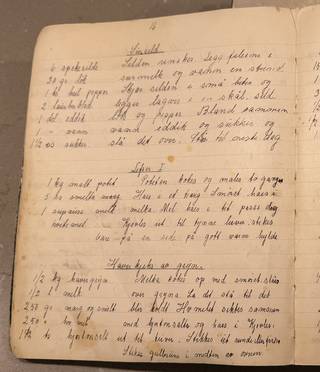 15
Sursild.
6 spekesild Silden renskes. Legg fileene i
20 gr løk surmelk og vann en stund.
1 ts hel pepper Skjær silden i små biter og
2 laurbærblad legges lagvis i en skål. Sild
1 dl eddik løk og pepper. Bland sammen
1 " vann vand eddik og sukker og
1½ ss sukker. slå det over. Står til neste dag
Lefser I
1 kg smått potet Poteten kokes og males to ganger
smelt. marg. Has i et Smøret has i
1 melk melka. Mel has i til passe deig
Kjevles ut til tynne lever. stekes
bare på en side på godt varm hylde
Havrekjeks av gryn.
½ kg havregryn Melka kokes op med smøret. slåes
½ l melk over gryna. La det stå til det
250 gr marg og smelt blir kaldt. Hv.melet siktes sammen
250 " hv. mel med hjortesalt og has i. Kjevles
1½ ts hjortesalt ut til lever. Stikkes ut runde
Stekes gulbrune i midten av ovnen.